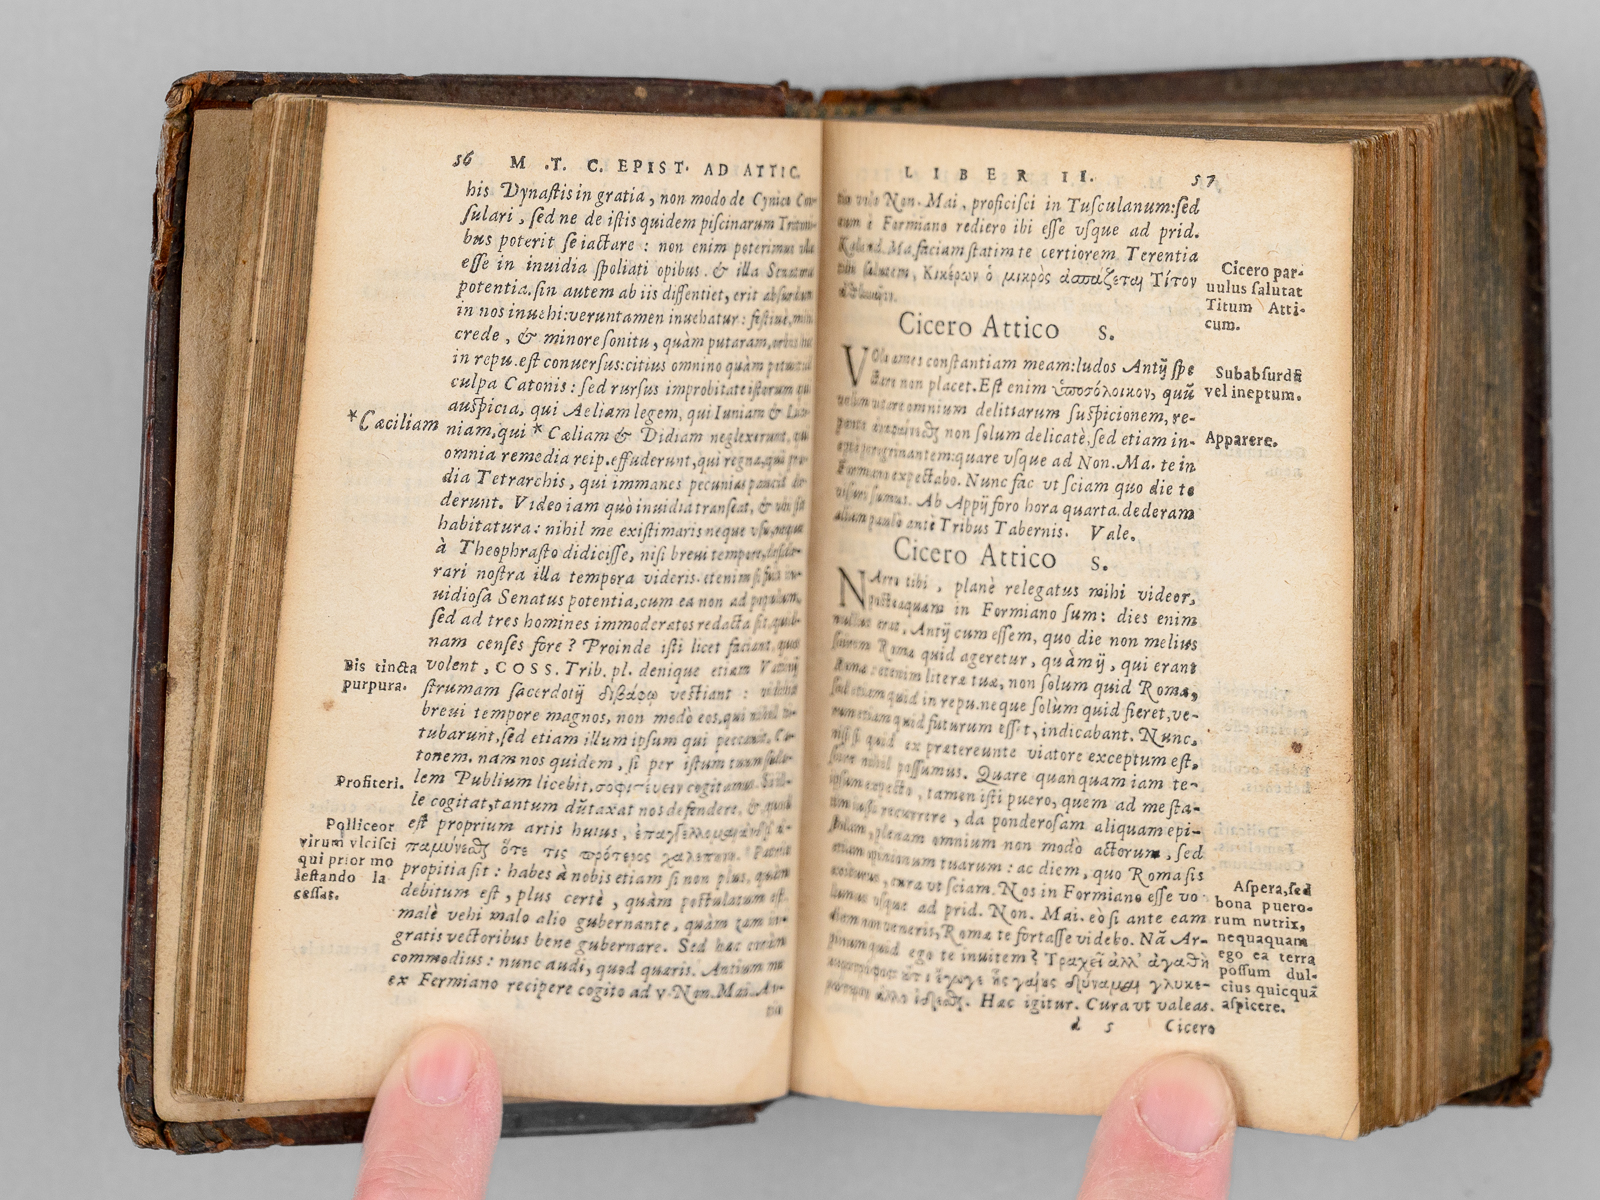 56 M .T. C. EPIST. AD ATTIC.
his Dynastis in gratia, non modo de Cynico
sulari, sed ne de istis quidem piscinarum
bus poterit se iactare: non enim poterimus
esse in inuidia spoliati opibus. & illa Senatoria
potentia. sin autem ab iis dissentiet, erit absurdum
in nos inuehi: veruntamen inuehatur: festiuè, mihi
crede, & minore sonitu, quàm putaram,
in repu. est conuersus: citius omnino quàm
culpa Catonis: sed rursus improbitate istorum
auspicia, qui Aeliam legem, qui Iuniam &
*Cæciliam
niam, qui * Cæliam & Didiam neglexerunt, qui
omnia remedia reip. effuderunt, qui regna, qui
dia Tetrarchis, qui immanes pecunias paucis de
derunt. Video iam quò inuidia transeat, & vbi sit
habitatura: nihil me existimaris neque vsu, neque
à Theophrasto didicisse, nisi breui tempore,
rari nostra illa tempora videris. etenim si fuit in-
uidiosa Senatus potentia, cum ea non ad populum,
sed ad tres homines immoderatos redacta sit, quid
nam censes fore? Proinde isti licet faciant, quos
Bis tincta
purpura.
volent, COSS. Trib. pl. denique etiam Vatinij
strumam sacerdotij διβάφῳ vestiant: videbis
breui tempore magnos, non modò eos, qui nihil ti-
tubarunt, sed etiam illum ipsum qui peccauit, Ca-
tonem. nam nos quidem, si per istum tuum soda-
Profiteri.
lem Publium licebit, σοφιστεύειν cogitamus.
le cogitat, tantum dũtaxat nos defendere, & quod
Polliceor
virum vlcisci
qui prior mo
lestando la
cessat.
est proprium artis huius, ἐπαγγέλλομαι
παμύνεσθαι ὅτε τις πρότερος χαλεπήνῃ. Patria
propitia sit: habet à nobis etiam si non plus, quàm
debitum est, plus certè, quàm postulatum est.
malè vehi malo alio gubernante, quàm tam in-
gratis vectoribus bene gubernare. Sed hæc coràm
commodius: nunc audi, quod quæris. Antium me
ex Formiano recipere cogito ad v. Non. Mai. An-
tio
LIBER II. 57
tio volo Non. Mai, proficisci in Tusculanum: sed
cum è Formiano rediero ibi esse vsque ad prid.
Kalend. Ma. faciam statim te certiorem Terentia
tibi salutem, Κικέρων ὁ μικρὸς ἀσπάζεται Τίτον
Cicero par-
uulus salutat
Titum Atti-
cum.
Cicero Attico S.
VOlo ames constantiam meam: ludos Antij spe
Subabsurdũ
vel ineptum.
ctare non placet. Est enim ὑποσόλοικον, quũ
velim vitare omnium delitiarum suspicionem, re-
Apparere.
pente non solum delicatè, sed etiam in-
eptè peregrinantem: quare vsque ad Non. Ma. te in
Formiano expectabo. Nunc fac vt sciam quo die te
visuri sumus. Ab Appij foro hora quarta. dederam
aliam paulo antè Tribus Tabernis. Vale.
Cicero Attico S.
NArro tibi, planè relegatus mihi videor,
posteaquam in Formiano sum: dies enim
nullus erat, Antij cum essem, quo die non melius
scirem Romæ quid ageretur, quàm ij, qui erant
Romæ: etenim literæ tuæ, non solum quid Romæ,
sed etiam quid in repu. neque solùm quid fieret, ve-
rum etiam quid futurum esset, indicabant. Nunc,
nisi si quid ex prætereunte viatore exceptum est,
scire nihil possumus. Quare quanquam iam te-
ipsum expecto, tamen isti puero, quem ad me sta-
tim iussi recurrere, da ponderosam aliquam epi-
stolam, plenam omnium non modò actorum, sed
etiam opinionum tuarum: ac diem, quo Roma sis
exiturus, cura vt sciam. Nos in Formiano esse vo-
lumus vsque ad prid. Non. Mai. eò si ante eam
diem non veneris, Romæ te fortasse videbo. Nã Ar-
pinum quid ego te inuitem? Τραχεῖ ἀλλ' ἀγαθὴ
ὔτ' ἔγωγε ἧς γαίης δύναμαι γλυκε-
Hæc igitur. Cura vt valeas.
Aspera, sed
bona puero-
rum nutrix,
nequaquam
ego ea terra
possum dul-
cius quicquã
aspicere.
d 5 Cicero